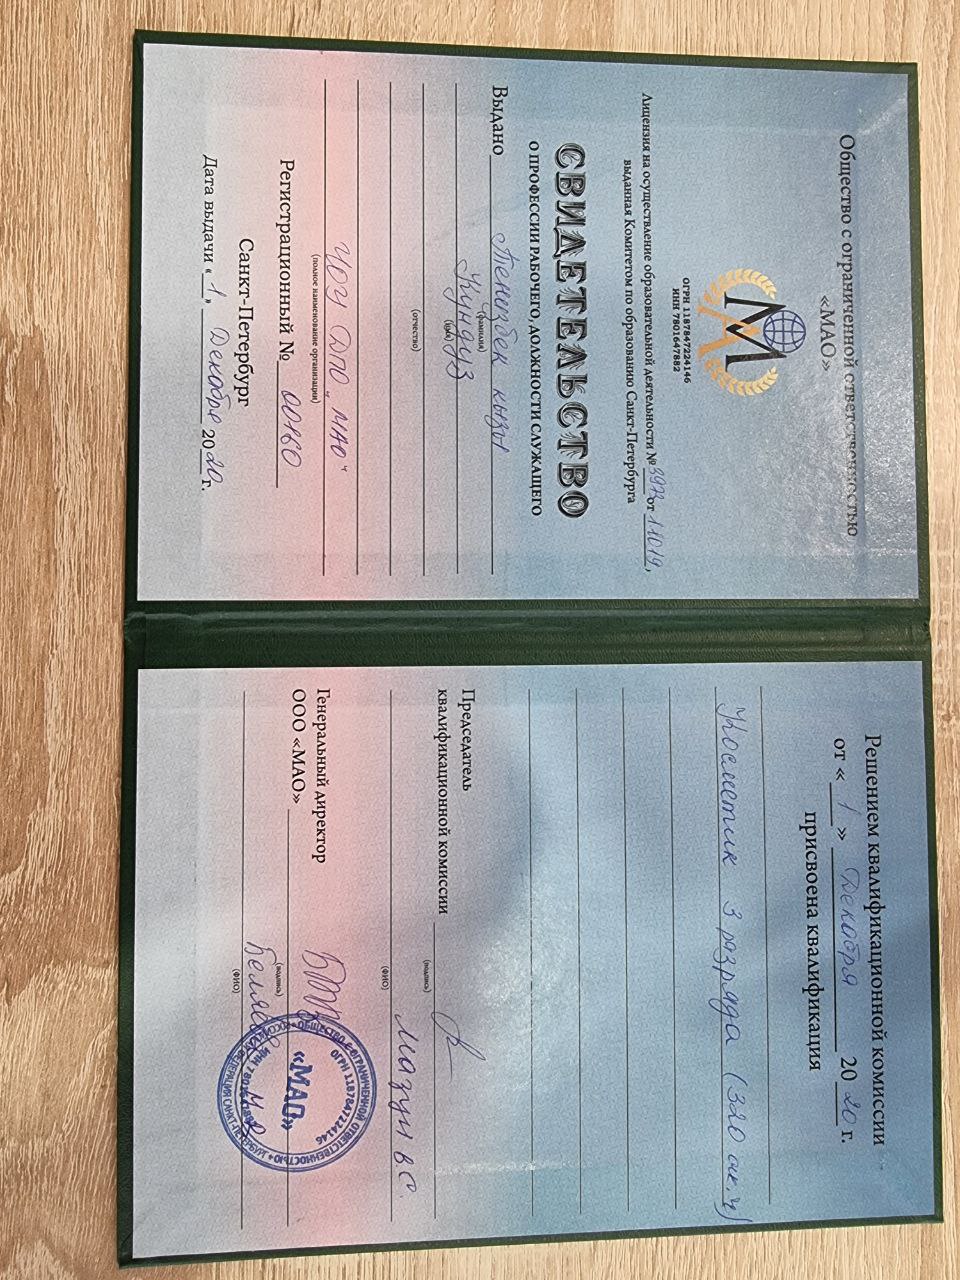 Общество с ограниченной ответственностью
«МАО»
ОГРН 1187847224146
ИНН 7801647882
Лицензия на осуществление образовательной деятельности № 3973 от 11019,
выданная Комитетом по образованию Санкт-Петербурга
СВИДЕТЕЛЬСТВО
О ПРОФЕССИИ РАБОЧЕГО, ДОЛЖНОСТИ СЛУЖАЩЕГО
Выдано Тенизбек кызы
(фамилия)
Кундуз
(имя)
(отчество)
ЧОУ ДПО "МАО"
(полное наименование организации)
Регистрационный № 00160
Санкт-Петербург
Дата выдачи «1» Декабря 2020 г.
Решением квалификационной комиссии
от «1» Декабря 2020 г.
присвоена квалификация
Косметик 3 разряда (320 ак.ч)
Председатель
квалификационной комиссии
(подпись)
Мазун В С.
(ФИО)
Генеральный директор
ООО «МАО»
(подпись)
(ФИО)
ОБЩЕСТВО С ОГРАНИЧЕННОЙ ОТВЕТСТВЕННОСТЬЮ
ОГРН 1187847224146
«МАО»